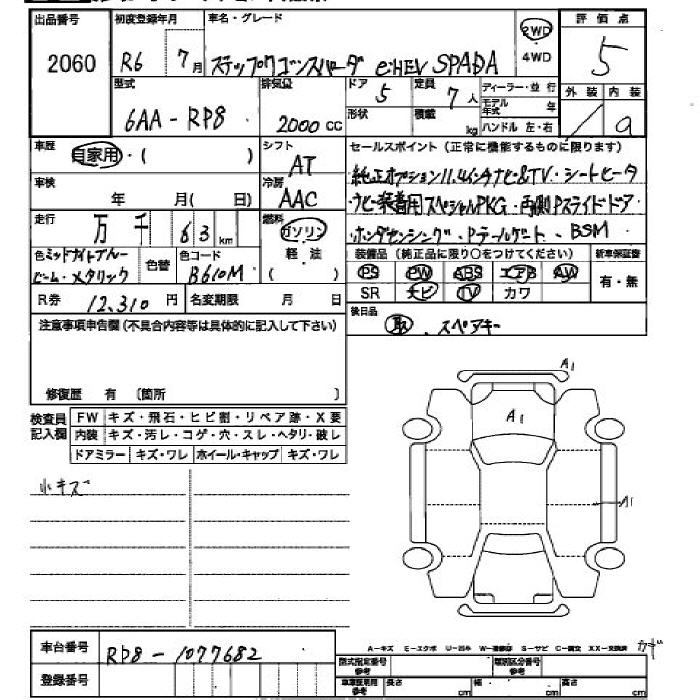 出品番号 初度登録年月 車名・グレード 2WD 評価点
2060 R6 7月 ステップワゴンスパーダ e:HEV SPADA 4WD 5
型式 排気量 ドア 5 定員 7人 ディーラー・並行 外装 内装
6AA-RP8 2000cc 形状 積載 kg モデル年式 年 ハンドル 左・右 a
車歴 自家用・( ) シフト AT セールスポイント(正常に機能するものに限ります)
車検 年 月(日) 冷房 AAC 純正オプション11.4インチナビ&TV・シートヒータ
走行 万 千 63km 燃料 ガソリン 軽油 ( ) ナビ装着用スペシャルPKG・両側Pスライドドア
ホンダセンシング・Pテールゲート・BSM
色 ミッドナイトブルービーム・メタリック 色替 色コード B610M 装備品(純正品に限り〇をつけてください) 新車保証書
PS PW ABS エアB AW 有・無
R券 12,310円 名変期限 月 日 SR ナビ TV カワ
注意事項申告欄(不具合内容等は具体的に記入して下さい) 後日品
取.スペアキー
修復歴 有 〔箇所 〕
検査員記入欄 FW キズ・飛石・ヒビ割・リペア跡・X要
内装 キズ・汚レ・コゲ・穴・スレ・ヘタリ・破レ
ドアミラー キズ・ワレ ホイール・キャップ キズ・ワレ
小キズ
A1
A1
A1
車台番号 RP8-1077682
A-キズ E-エクボ U-凹み S-サビ XX-交換済
登録番号 型式指定番号 参考 類別区分番号 参考
長さ cm 幅 cm 高さ cm